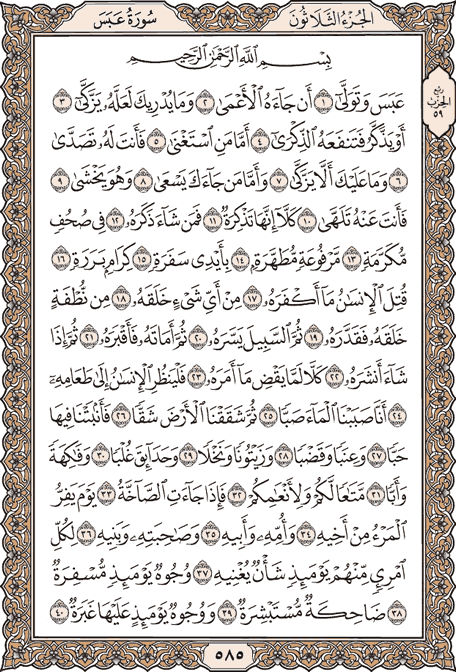 الجُزءُ الثَّلَاثُونَ سُورَةُ عَبَسَ
بِسْمِ اللَّهِ الرَّحْمَٰنِ الرَّحِيمِ
رُبع
الحِزب
٥٩
عَبَسَ وَتَوَلَّىٰٓ ١ أَن جَآءَهُ ٱلْأَعْمَىٰ ٢ وَمَا يُدْرِيكَ لَعَلَّهُۥ يَزَّكَّىٰٓ ٣
أَوْ يَذَّكَّرُ فَتَنفَعَهُ ٱلذِّكْرَىٰٓ ٤ أَمَّا مَنِ ٱسْتَغْنَىٰ ٥ فَأَنتَ لَهُۥ تَصَدَّىٰ
٦ وَمَا عَلَيْكَ أَلَّا يَزَّكَّىٰ ٧ وَأَمَّا مَن جَآءَكَ يَسْعَىٰ ٨ وَهُوَ يَخْشَىٰ ٩
فَأَنتَ عَنْهُ تَلَهَّىٰ ١٠ كَلَّآ إِنَّهَا تَذْكِرَةٌ ١١ فَمَن شَآءَ ذَكَرَهُۥ ١٢ فِى صُحُفٍ
مُّكَرَّمَةٍ ١٣ مَّرْفُوعَةٍ مُّطَهَّرَةٍۭ ١٤ بِأَيْدِى سَفَرَةٍ ١٥ كِرَامٍۭ بَرَرَةٍ ١٦
قُتِلَ ٱلْإِنسَٰنُ مَآ أَكْفَرَهُۥ ١٧ مِنْ أَىِّ شَىْءٍ خَلَقَهُۥ ١٨ مِن نُّطْفَةٍ
خَلَقَهُۥ فَقَدَّرَهُۥ ١٩ ثُمَّ ٱلسَّبِيلَ يَسَّرَهُۥ ٢٠ ثُمَّ أَمَاتَهُۥ فَأَقْبَرَهُۥ ٢١ ثُمَّ إِذَا
شَآءَ أَنشَرَهُۥ ٢٢ كَلَّا لَمَّا يَقْضِ مَآ أَمَرَهُۥ ٢٣ فَلْيَنظُرِ ٱلْإِنسَٰنُ إِلَىٰ طَعَامِهِۦٓ
٢٤ أَنَّا صَبَبْنَا ٱلْمَآءَ صَبًّا ٢٥ ثُمَّ شَقَقْنَا ٱلْأَرْضَ شَقًّا ٢٦ فَأَنۢبَتْنَا فِيهَا
حَبًّا ٢٧ وَعِنَبًا وَقَضْبًا ٢٨ وَزَيْتُونًا وَنَخْلًا ٢٩ وَحَدَآئِقَ غُلْبًا ٣٠ وَفَٰكِهَةً
وَأَبًّا ٣١ مَّتَٰعًا لَّكُمْ وَلِأَنْعَٰمِكُمْ ٣٢ فَإِذَا جَآءَتِ ٱلصَّآخَّةُ ٣٣ يَوْمَ يَفِرُّ
ٱلْمَرْءُ مِنْ أَخِيهِ ٣٤ وَأُمِّهِۦ وَأَبِيهِ ٣٥ وَصَٰحِبَتِهِۦ وَبَنِيهِ ٣٦ لِكُلِّ
ٱمْرِئٍ مِّنْهُمْ يَوْمَئِذٍ شَأْنٌ يُغْنِيهِ ٣٧ وُجُوهٌ يَوْمَئِذٍ مُّسْفِرَةٌ
٣٨ ضَاحِكَةٌ مُّسْتَبْشِرَةٌ ٣٩ وَوُجُوهٌ يَوْمَئِذٍ عَلَيْهَا غَبَرَةٌ ٤٠
٥٨٥